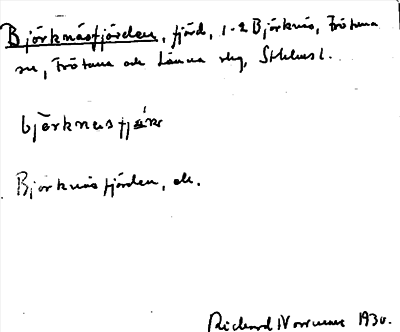 Björknäsfjärden, fjärd, 1-2 Björknäs, Frötuna
sn, Frötuna och Länna slg, Sthlms l.
björknäsfjä̀ṇ
Björknäsfjärden, ek.
Richard Norrman 1930.